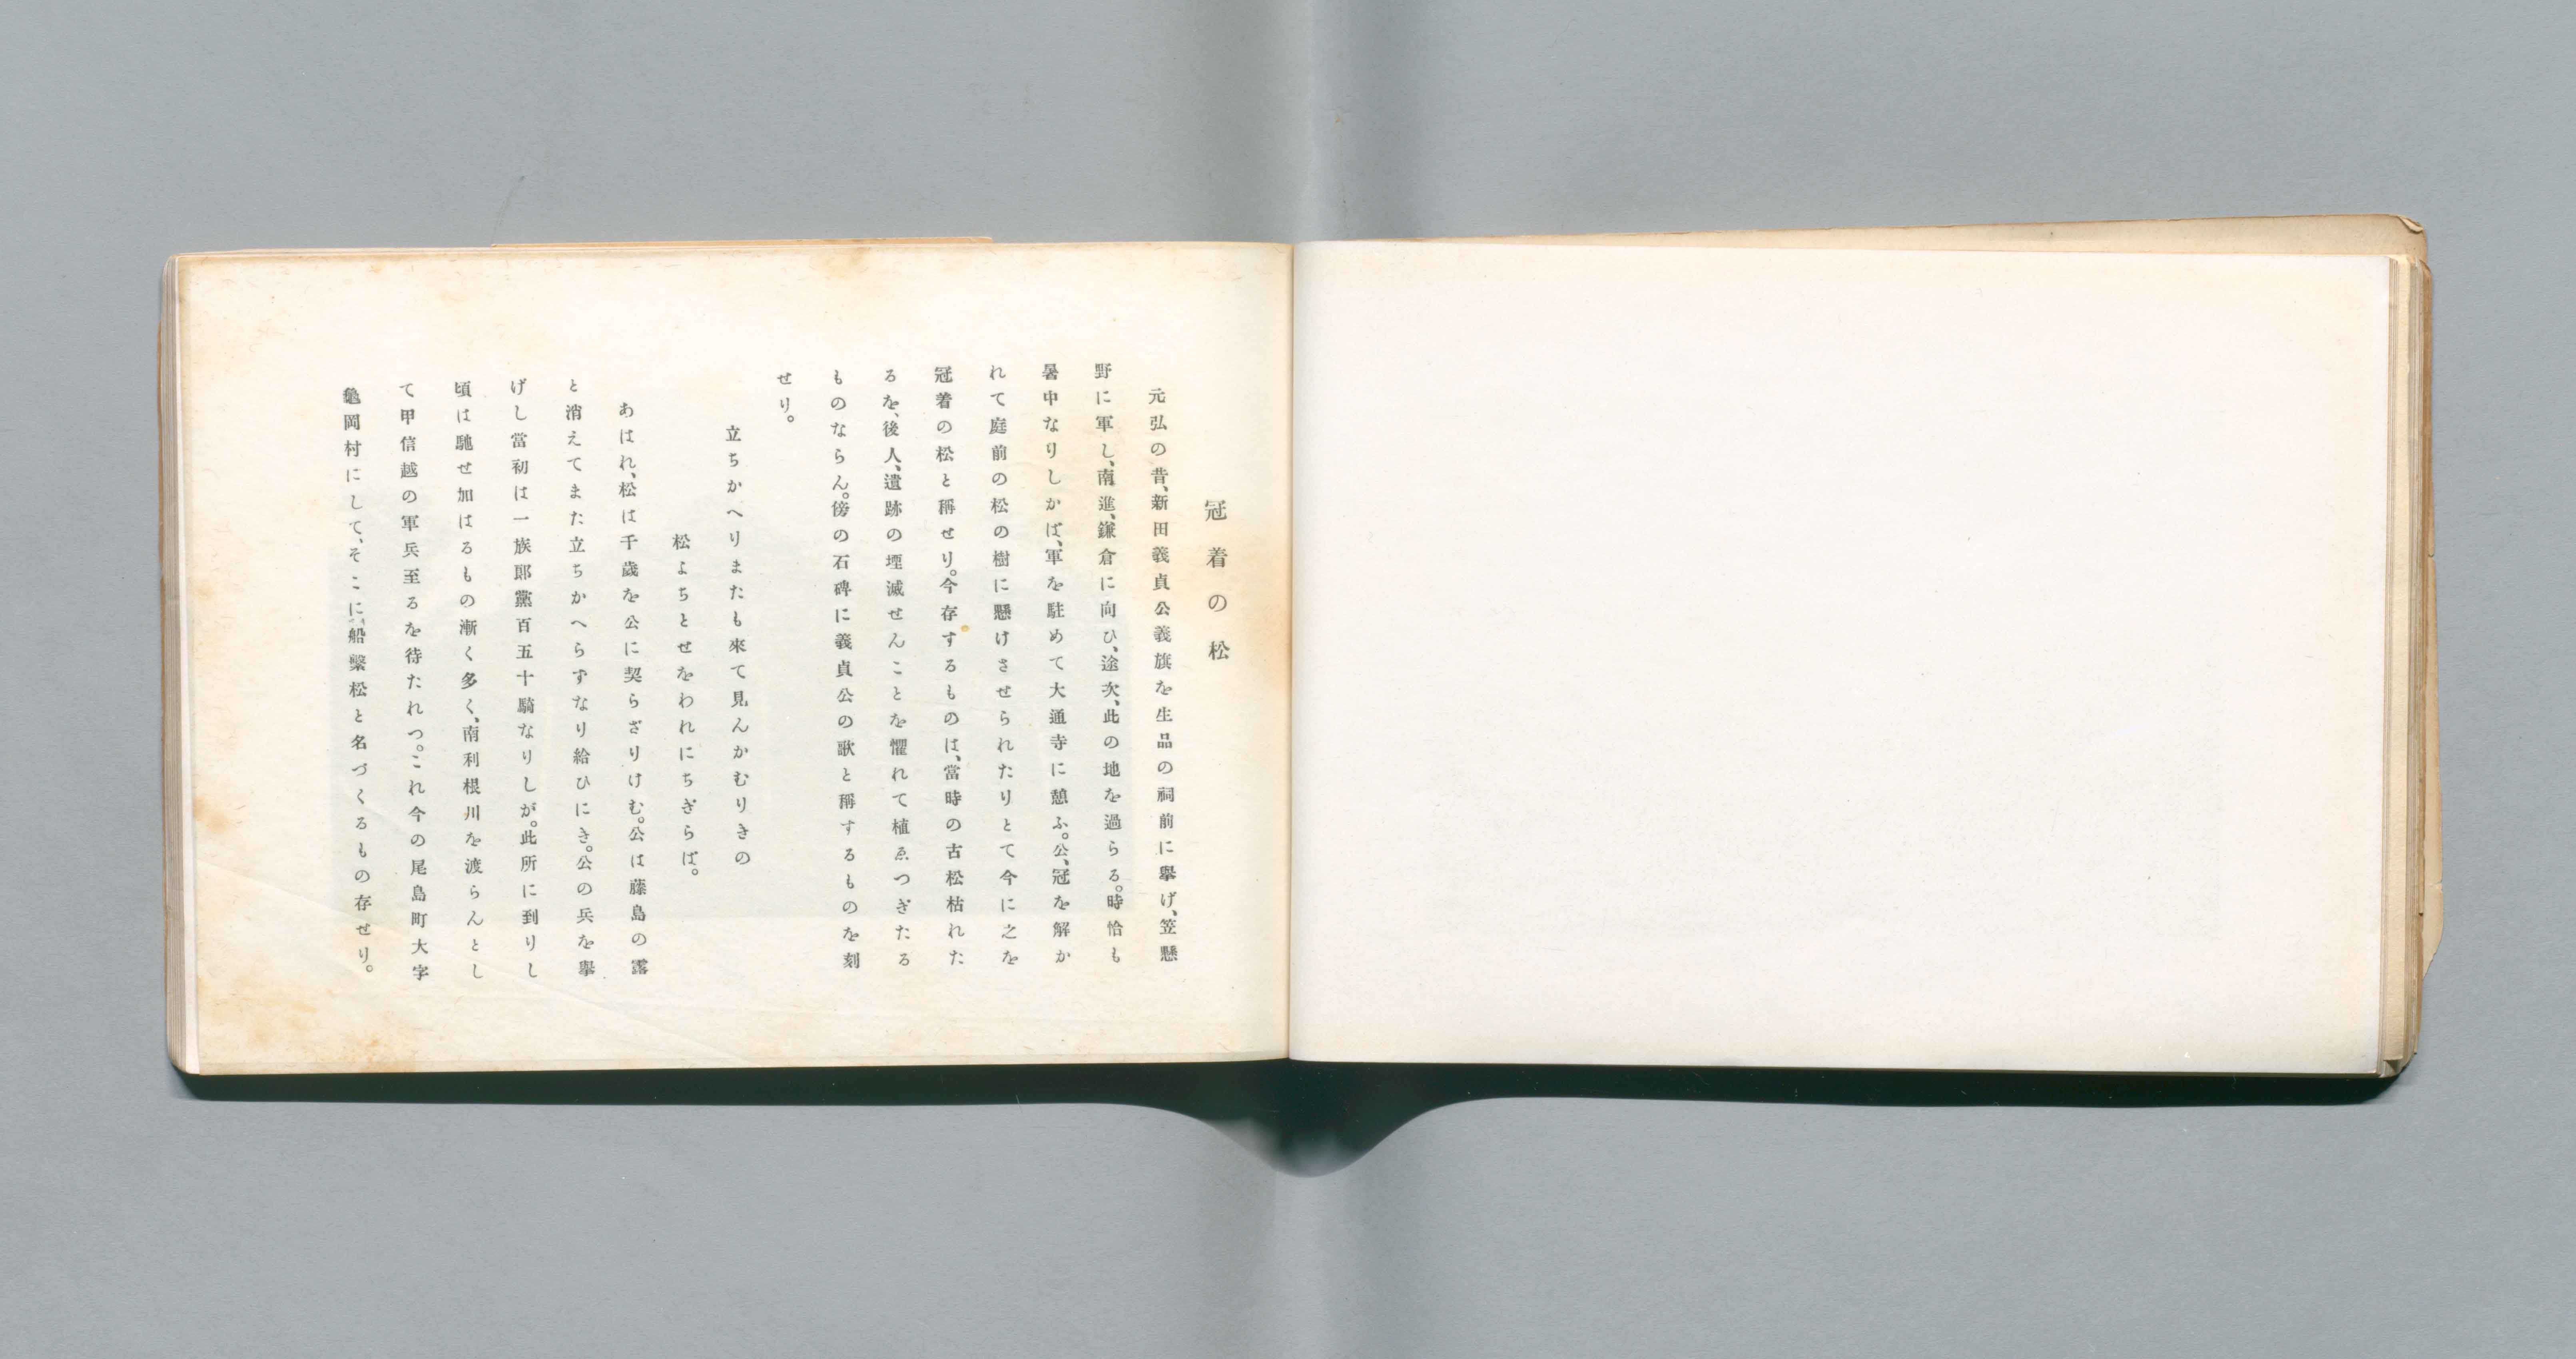 冠着の松
元弘の昔、新田義貞公義旗を生品の祠前に擧げ、笠懸
野に軍し、南進、鎌倉に向ひ、途次、此の地を過らる。時恰も
暑中なりしかば、軍を駐めて大通寺に憩ふ。公、冠を解か
れて庭前の松の樹に懸けさせられたりとて今に之を
冠着の松と稱せり。今存するものは、當時の古松枯れた
るを、後人、遺跡の堙滅せんことを懼れて植ゑつぎたる
ものならん。傍の石碑に義貞公の歌と稱するものを刻
せり。
立ちかへりまたも來て見んかむりきの
松よちとせをわれにちぎらば。
あはれ、松は千歲を公に契らざりけむ。公は藤島の露
と消えてまた立ちかへらずなり給ひにき。公の兵を擧
げし當初は一族郞黨百五十騎なりしが。此所に到りし
頃は馳せ加はるもの漸く多く、南利根川を渡らんとし
て甲信越の軍兵至るを待たれつ。これ今の尾島町大字
龜岡村にして、そこに、船繫松と名づくるもの存せり。